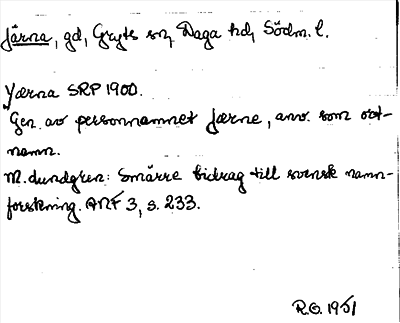 Järna, gd, Gryts sn, Daga hd, Södm. l.
Yærna SRP 1900.
Gen. av personnamnet Jærne, anv. som ort-
namn.
M. Lundgren: Smärre bidrag till svensk namn-
forskning. ANF 3, s. 233.
R.O. 1951